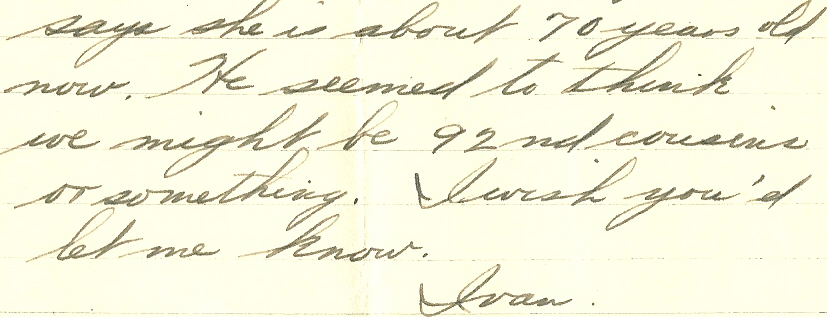 says she is about 70 years old
now. He seemed to think
we might be 92nd cousins
or something. I wish you'd
let me know.
Ivan.